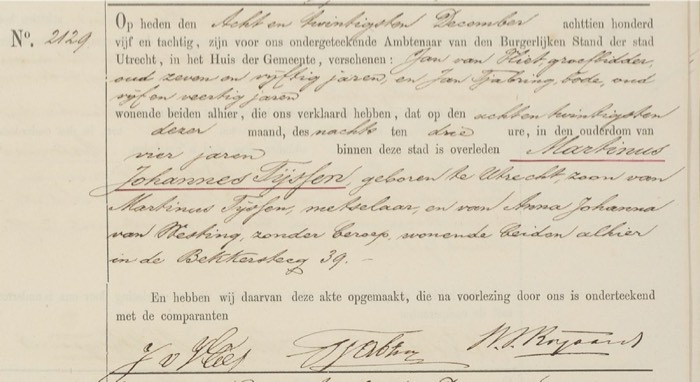 Nº. 2129
Op heden den Acht en twintigsten December achttien honderd
vijf en tachtig, zijn voor ons ondergeteekende Ambtenaar van den Burgerlijken Stand der stad
Utrecht, in het Huis der Gemeente, verschenen: Jan van Vliet, groefbidder,
oud zeven en vijftig jaren, en Jan Tabring, bode, oud
vijf en veertig jaren
wonende beiden alhier, die ons verklaard hebben, dat op den achtentwintigsten
dezer maand, des nachts ten drie ure, in den ouderdom van
vier jaren binnen deze stad is overleden Martinus
Johannes Tijssen, geboren te Utrecht, zoon van
Martinus Tijssen, metselaar, en van Anna Johanna
van Westing, zonder beroep, wonende beiden alhier
in de Bekkersteeg 39. –
En hebben wij daarvan deze akte opgemaakt, die na voorlezing door ons is onderteekend
met de comparanten
J v Vliet